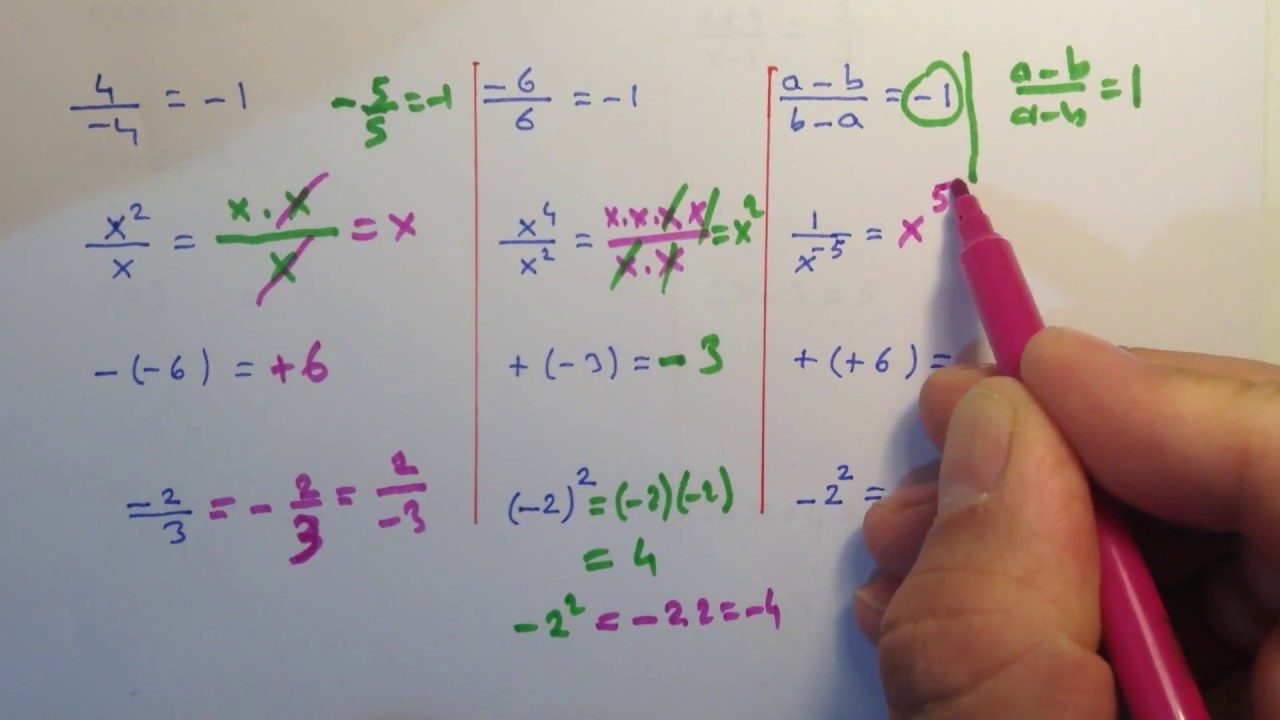 4/-4 = -1    -5/5 = -1    -6/6 = -1    a-b/b-a = -1    a-b/a-b = 1
x²/x = x·x/x = x    x⁴/x² = x.x.x.x/x.x = x²    1/x⁻⁵ = x⁵
-(-6) = +6    +(-3) = -3    +(+6) =
-2/3 = -2/3 = 2/-3    (-2)² = (-2)(-2)    -2² =
= 4
-2² = -2.2 = -4